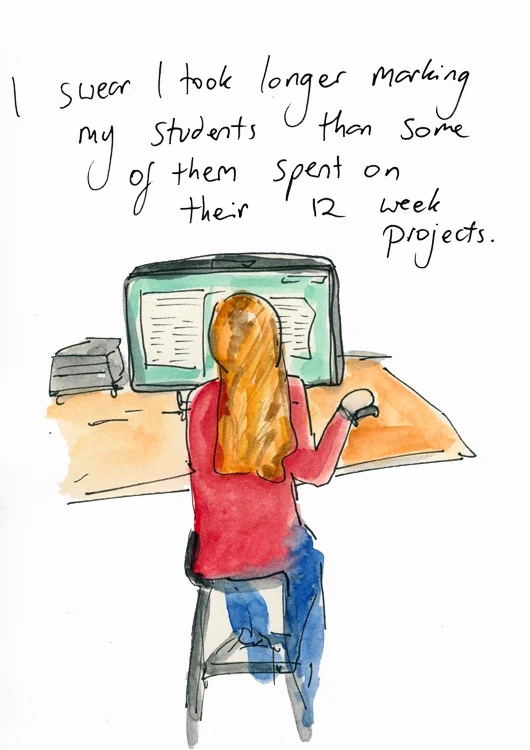 I swear I took longer marking
my students than some
of them spent on
their 12 week
projects.